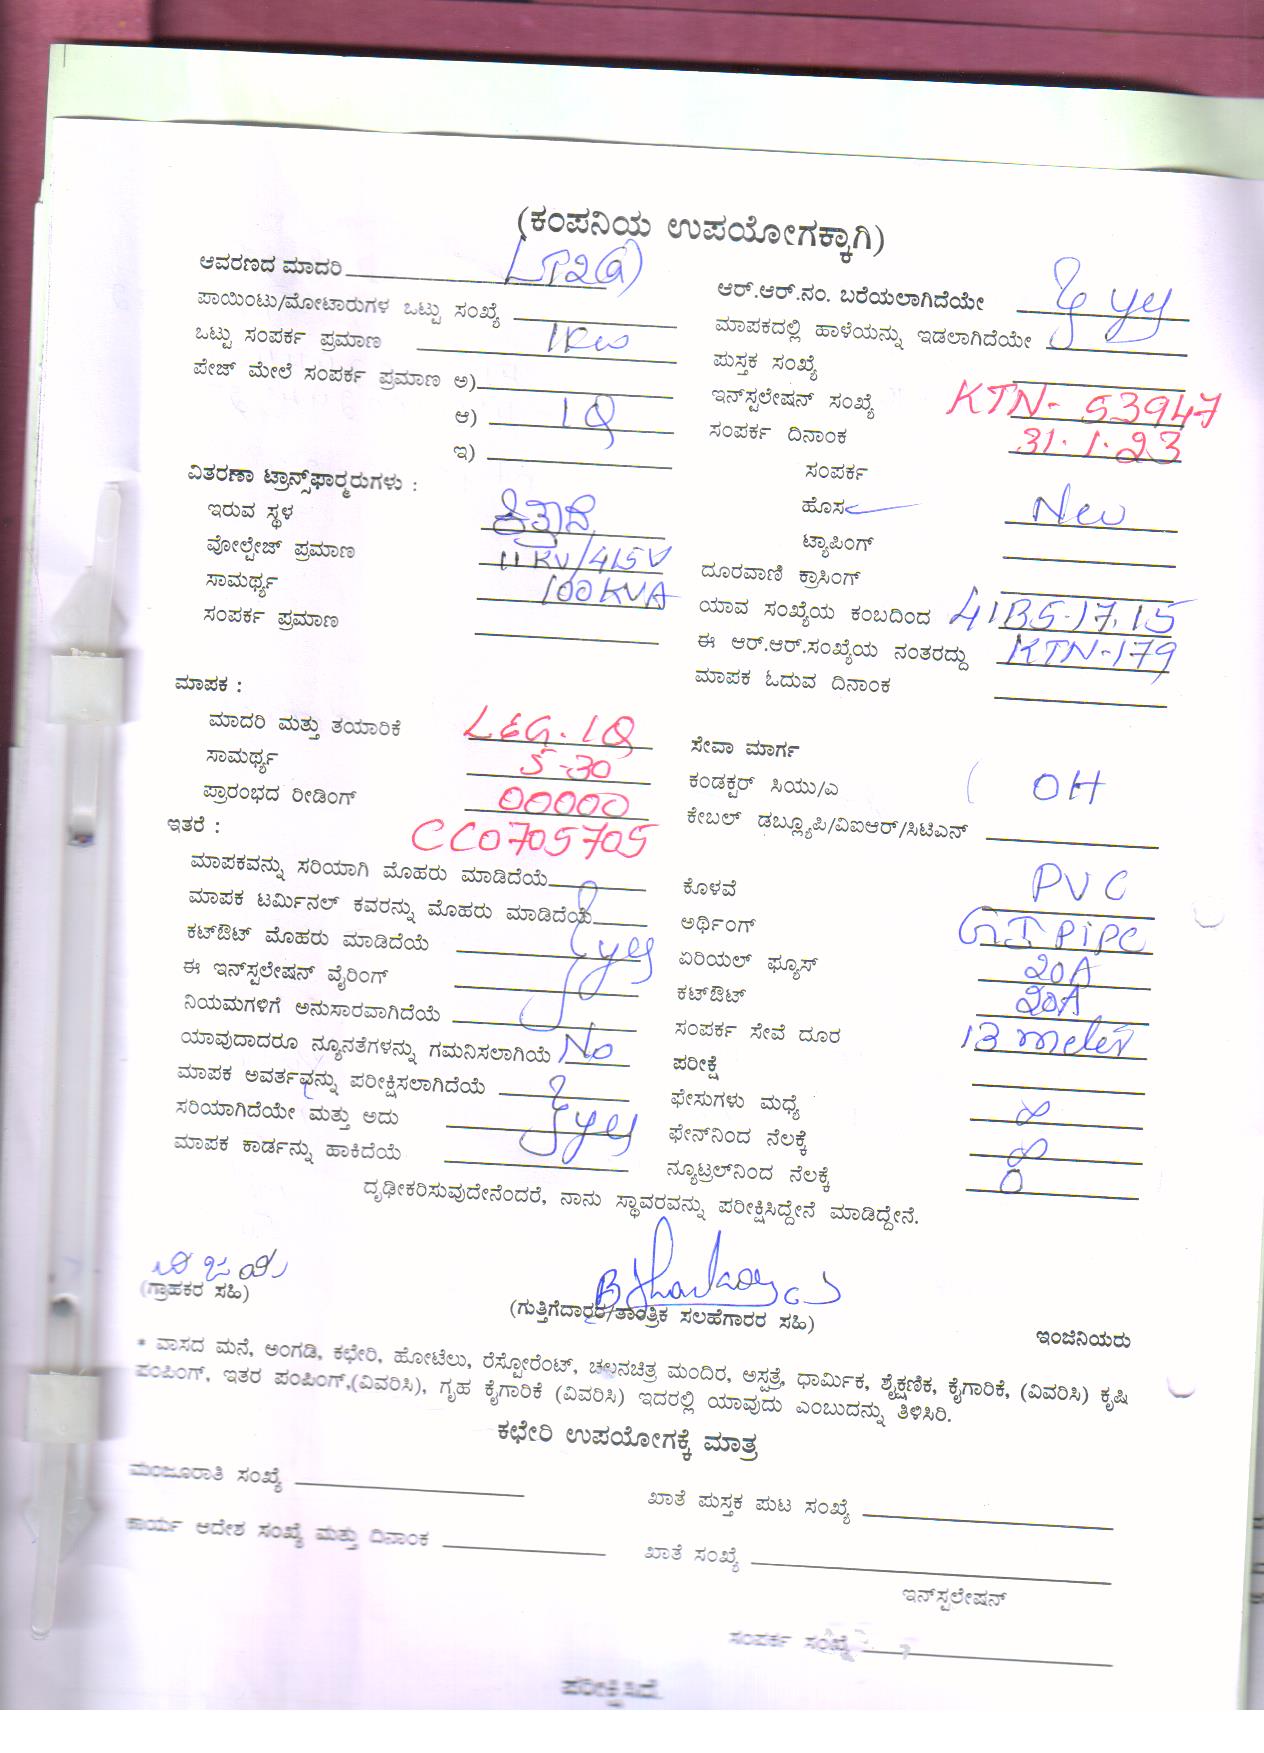 (ಕಂಪನಿಯ ಉಪಯೋಗಕ್ಕಾಗಿ)
ಆವರಣದ ಮಾದರಿ LT2(a)
ಪಾಯಿಂಟು/ಮೋಟಾರುಗಳ ಒಟ್ಟು ಸಂಖ್ಯೆ
ಒಟ್ಟು ಸಂಪರ್ಕ ಪ್ರಮಾಣ 1Kw
ಪೇಜ್ ಮೇಲೆ ಸಂಪರ್ಕ ಪ್ರಮಾಣ ಅ)
ಆ) 1Q
ಇ)
ವಿತರಣಾ ಟ್ರಾನ್ಸ್‌ಫಾರ್ಮರುಗಳು :
ಇರುವ ಸ್ಥಳ
ವೋಲ್ಟೇಜ್ ಪ್ರಮಾಣ 11KV/415V
ಸಾಮರ್ಥ್ಯ 100KVA
ಸಂಪರ್ಕ ಪ್ರಮಾಣ
ಮಾಪಕ :
ಮಾದರಿ ಮತ್ತು ತಯಾರಿಕೆ L&G. 1Q
ಸಾಮರ್ಥ್ಯ 5-30
ಪ್ರಾರಂಭದ ರೀಡಿಂಗ್ 00000
ಇತರೆ : CC0705705
ಮಾಪಕವನ್ನು ಸರಿಯಾಗಿ ಮೊಹರು ಮಾಡಿದೆಯೆ
ಮಾಪಕ ಟರ್ಮಿನಲ್ ಕವರನ್ನು ಮೊಹರು ಮಾಡಿದೆಯೆ
ಕಟ್‌ಔಟ್ ಮೊಹರು ಮಾಡಿದೆಯೆ } yes
ಈ ಇನ್‌ಸ್ಪಲೇಷನ್ ವೈರಿಂಗ್
ನಿಯಮಗಳಿಗೆ ಅನುಸಾರವಾಗಿದೆಯೆ
ಯಾವುದಾದರೂ ನ್ಯೂನತೆಗಳನ್ನು ಗಮನಿಸಲಾಗಿಯೆ No
ಮಾಪಕ ಅವರ್ತವನ್ನು ಪರೀಕ್ಷಿಸಲಾಗಿದೆಯೆ
ಸರಿಯಾಗಿದೆಯೇ ಮತ್ತು ಅದು } yes
ಮಾಪಕ ಕಾರ್ಡನ್ನು ಹಾಕಿದೆಯೆ
ಆರ್.ಆರ್.ನಂ. ಬರೆಯಲಾಗಿದೆಯೇ } yes
ಮಾಪಕದಲ್ಲಿ ಹಾಳೆಯನ್ನು ಇಡಲಾಗಿದೆಯೇ
ಪುಸ್ತಕ ಸಂಖ್ಯೆ
ಇನ್‌ಸ್ಪಲೇಷನ್ ಸಂಖ್ಯೆ KTN- 53947
ಸಂಪರ್ಕ ದಿನಾಂಕ 31.1.23
ಸಂಪರ್ಕ
ಹೊಸ New
ಟ್ಯಾಪಿಂಗ್
ದೂರವಾಣಿ ಕ್ರಾಸಿಂಗ್
ಯಾವ ಸಂಖ್ಯೆಯ ಕಂಬದಿಂದ
ಈ ಆರ್.ಆರ್.ಸಂಖ್ಯೆಯ ನಂತರದ್ದು KTN-179
ಮಾಪಕ ಓದುವ ದಿನಾಂಕ
ಸೇವಾ ಮಾರ್ಗ
ಕಂಡಕ್ಟರ್ ಸಿಯು/ಎ OH
ಕೇಬಲ್ ಡಬ್ಲ್ಯೂಪಿ/ವಿಐಆರ್/ಸಿಟಿಎನ್
ಕೊಳವೆ PVC
ಅರ್ಥಿಂಗ್ GI Pipe
ಏರಿಯಲ್ ಫ್ಯೂಸ್ 20A
ಕಟ್‌ಔಟ್ 20A
ಸಂಪರ್ಕ ಸೇವೆ ದೂರ 13 meter
ಪರೀಕ್ಷೆ
ಫೇಸುಗಳು ಮಧ್ಯೆ ∞
ಫೇನ್‌ನಿಂದ ನೆಲಕ್ಕೆ ∞
ನ್ಯೂಟ್ರಲ್‌ನಿಂದ ನೆಲಕ್ಕೆ
ದೃಢೀಕರಿಸುವುದೇನೆಂದರೆ, ನಾನು ಸ್ಥಾವರವನ್ನು ಪರೀಕ್ಷಿಸಿದ್ದೇನೆ ಮಾಡಿದ್ದೇನೆ.
(ಗ್ರಾಹಕರ ಸಹಿ)
(ಗುತ್ತಿಗೆದಾರರ/ತಾಂತ್ರಿಕ ಸಲಹೆಗಾರರ ಸಹಿ)
ಇಂಜಿನಿಯರು
* ವಾಸದ ಮನೆ, ಅಂಗಡಿ, ಕಛೇರಿ, ಹೋಟೆಲು, ರೆಸ್ಟೋರೆಂಟ್, ಚಲನಚಿತ್ರ ಮಂದಿರ, ಅಸ್ಪತ್ರೆ, ಧಾರ್ಮಿಕ, ಶೈಕ್ಷಣಿಕ, ಕೈಗಾರಿಕೆ, (ವಿವರಿಸಿ) ಕೃಷಿ
ಪಂಪಿಂಗ್, ಇತರ ಪಂಪಿಂಗ್,(ವಿವರಿಸಿ), ಗೃಹ ಕೈಗಾರಿಕೆ (ವಿವರಿಸಿ) ಇದರಲ್ಲಿ ಯಾವುದು ಎಂಬುದನ್ನು ತಿಳಿಸಿರಿ.
ಕಛೇರಿ ಉಪಯೋಗಕ್ಕೆ ಮಾತ್ರ
ಮಂಜೂರಾತಿ ಸಂಖ್ಯೆ
ಖಾತೆ ಪುಸ್ತಕ ಪುಟ ಸಂಖ್ಯೆ
ಕಾರ್ಯ ಆದೇಶ ಸಂಖ್ಯೆ ಮತ್ತು ದಿನಾಂಕ
ಖಾತೆ ಸಂಖ್ಯೆ
ಇನ್‌ಸ್ಪಲೇಷನ್
ಸಂಪರ್ಕ ಸಂಖ್ಯೆ
ಪರೀಕ್ಷಿಸಿದೆ.